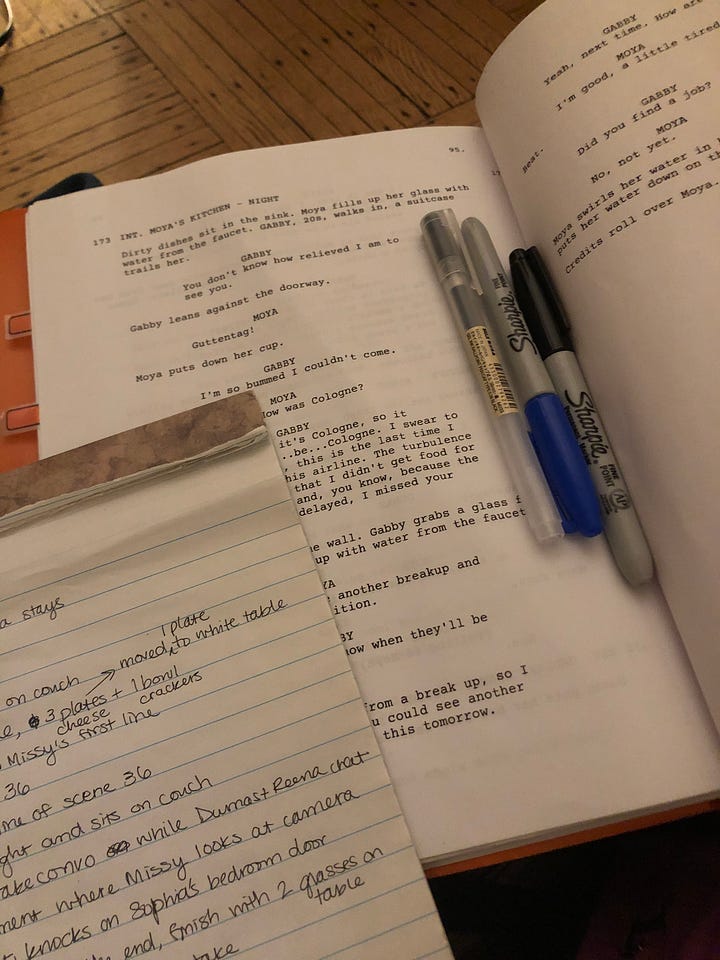 95.
173 INT. MOYA'S KITCHEN - NIGHT
Dirty dishes sit in the sink. Moya fills up her glass with
water from the faucet. GABBY, 20s, walks in, a suitcase
trails her.
GABBY
You don't know how relieved I am to
see you.
Gabby leans against the doorway.
MOYA
Guttentag!
Moya puts down her cup.
GABBY
I'm so bummed I couldn't come.
MOYA
How was Cologne?
GABBY
it's Cologne, so it
..be...Cologne. I swear to
, this is the last time I
his airline. The turbulence
that I didn't get food for
and, you know, because the
delayed, I missed your
wall. Gabby grabs a glass
up with water from the faucet
YA
another breakup and
ition.
BY
when they'll be
from a break up, so I
could see another
this tomorrow.
GABBY
Yeah, next time. How are
MOYA
I'm good, a little tired
GABBY
Did you find a job?
MOYA
No, not yet.
Beat.
Moya swirls her water in
puts her water down on
Credits roll over Moya.
Sharpie
FINE POINT
Sharpie
FINE
POINT
AP
a stays
1 plate
on couch moved to white table
3 plates + 1 bowl
cheese crackers
Missy's first line
36
line of scene 36
and sits on couch
convo while Dumast Reena chat
where Missy looks at camera
knocks on Sophia's bedroom door
end, finish with 2 glasses on
table
take